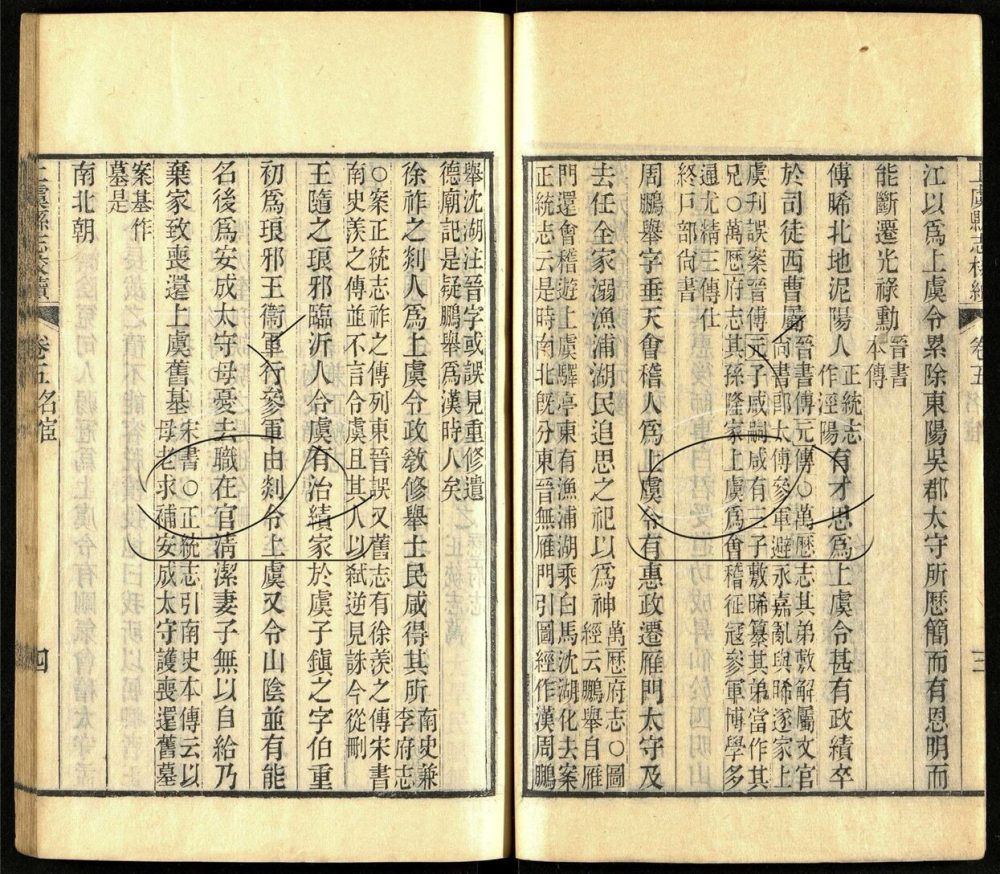 卷五
三
江以爲上虞令累除東陽吳郡太守所歷簡而有恩明而
能斷遷光祿勳晉書
本傳
傅晞北地泥陽人正統志
作涇陽有才思爲上虞令甚有政績卒
於司徒西曹屬晉書傅元傳○萬歷志其弟敷解屬文官
尚書郎太傅參軍避永嘉亂與晞遂家上
虞刊誤案晉傳元子咸嗣咸有三子敷晞纂其弟當作其
兄○萬歷府志其孫隆家上虞爲會稽征冠參軍博學多
通尤精三傳仕
終戶部尚書
周鵬舉字垂天會稽人爲上虞令有惠政遷雁門太守及
去任全家溺漁浦湖民追思之祀以爲神萬歷府志○圖
經云鵬舉自雁
門還會稽遊上虞驛亭東有漁浦湖乘白馬沈湖化去案
正統志云是時南北旣分東晉無雁門引圖經作漢周鵬
舉沈湖注晉字或誤見重修遺
德廟記是疑鵬舉爲漢時人矣
徐祚之剡人爲上虞令政敎修舉士民咸得其所南史兼
李府志
○案正統志祚之傳列東晉誤又舊志有徐羨之傳宋書
南史羨之傳並不言令虞且其人以弑逆見誅今從刪
王隨之琅邪臨沂人令虞有治績家於虞子鎮之字伯重
初爲琅邪王衞軍行參軍由剡令上虞又令山陰並有能
名後爲安成太守母憂去職在官淸潔妻子無以自給乃
棄家致喪還上虞舊基宋書○正統志引南史本傳云以
母老求補安成太守護喪還舊墓
案基作
墓是
南北朝
上虞縣志校續 卷五 名宦
四